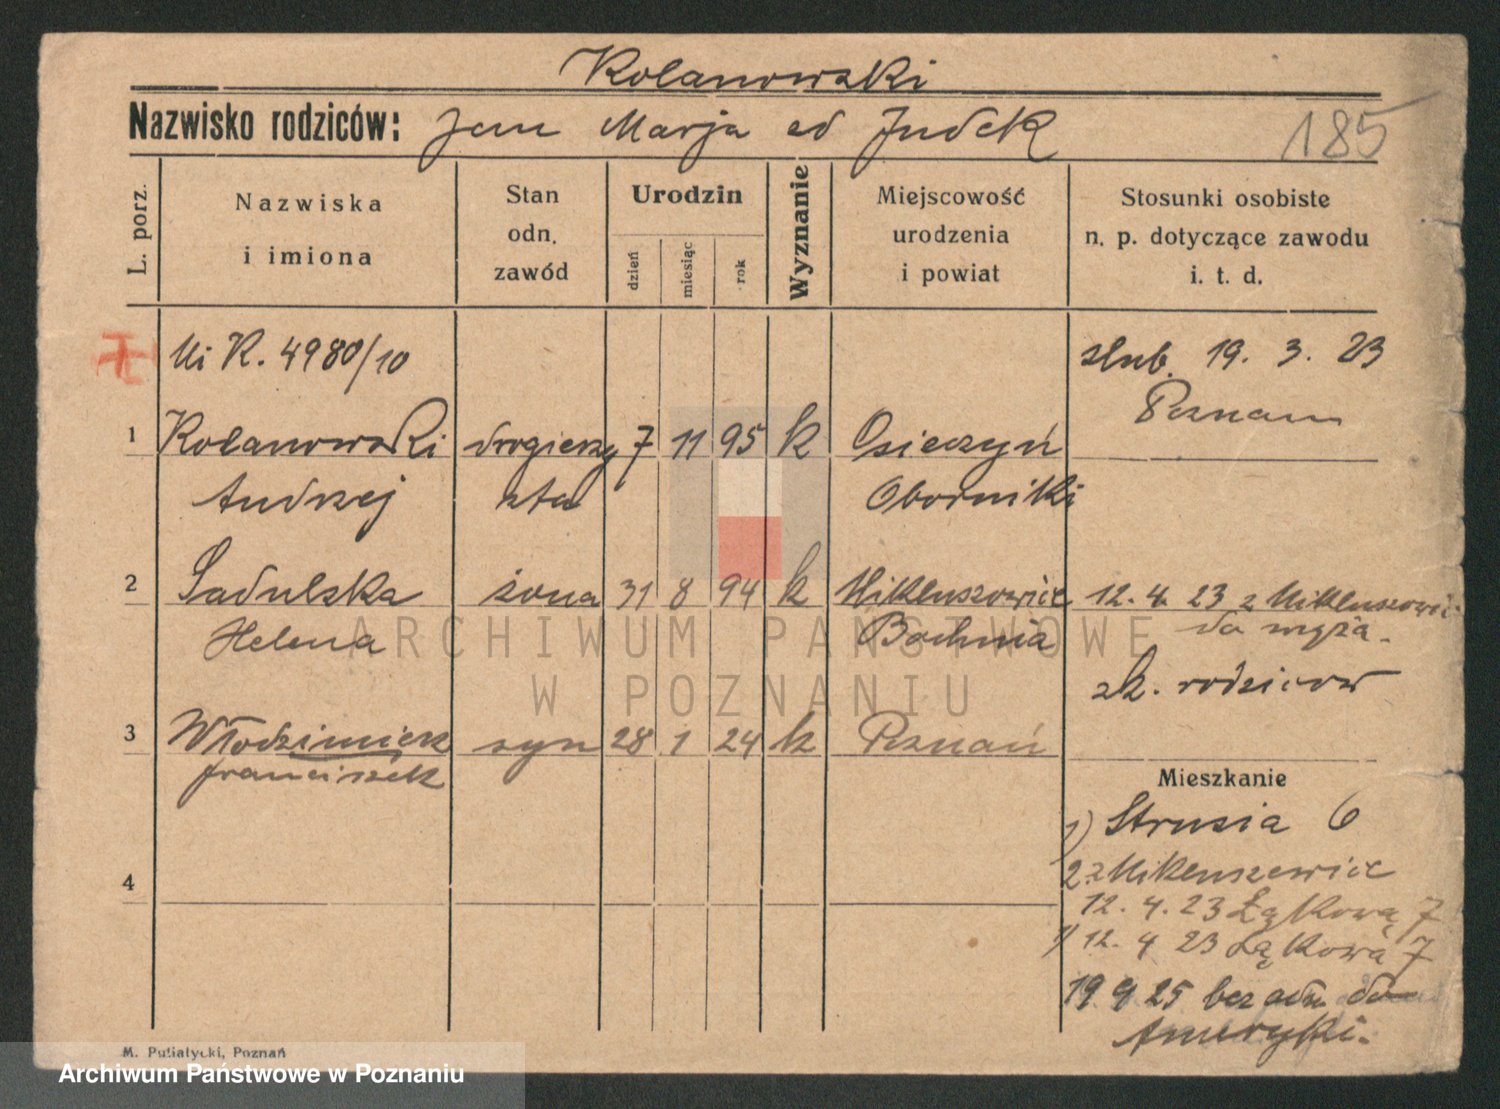 Kolanowski
Nazwisko rodziców: Jan Marja ed Judek
185
L. porz.
Nazwiska
i imiona
Stan
odn.
zawód
Urodzin
dzień
miesiąc
rok
Wyznanie
Miejscowość
urodzenia
i powiat
Stosunki osobiste
n. p. dotyczące zawodu
i. t. d.
K. 4980/10
ślub. 19. 3. 23
Poznam
1 Kolanowski drogierzy 7 11 95 k Osieczyń
Andrzej sta Oborniki
2 Sadulska żona 31 8 94 k Mikluszowice 12. 4. 23 z Mikluszowic
Helena Bochnia do męża.
zk. rodziców
3 Włodzimierz syn 28 1 24 k Poznań
Franciszek
Mieszkanie
1) Strusia 6
2. z Mikluszewic
12. 4. 23 Łąkową 7
1) 12. 4 23 Łąkowa 7
4
19 9 25 bez adn do
Ameryki.
M. Putiatycki, Poznań
ARCHIWUM PAŃSTWOWE
W POZNANIU
Archiwum Państwowe w Poznaniu